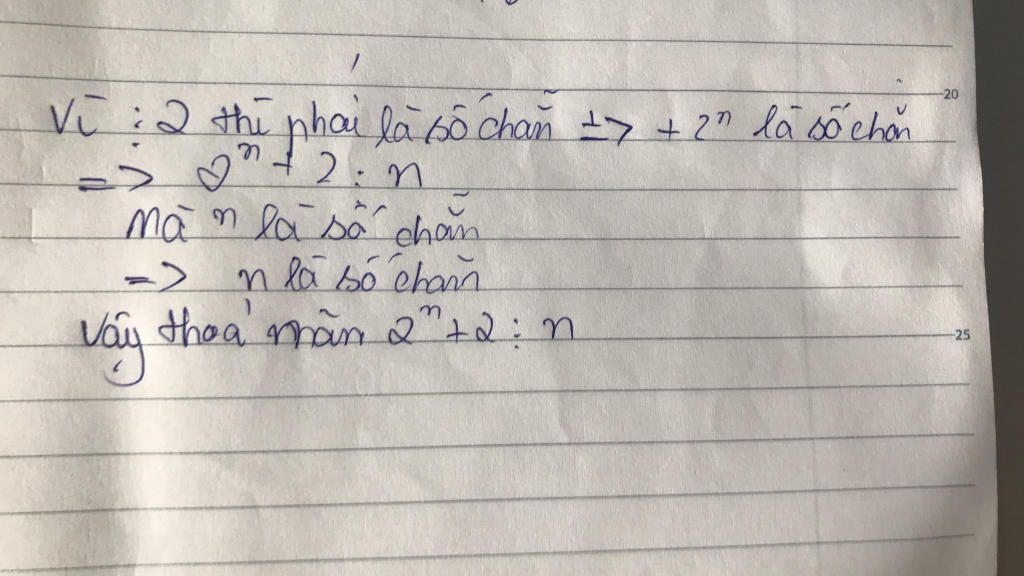 Vì ⋮ 2 thì phải là số chẵn => + 2ⁿ là số chẵn
=> 2ⁿ + 2 ⋮ n
Mà n là số chẵn
=> n là số chẵn
Vậy thoả mãn 2ⁿ + 2 ⋮ n
20
25